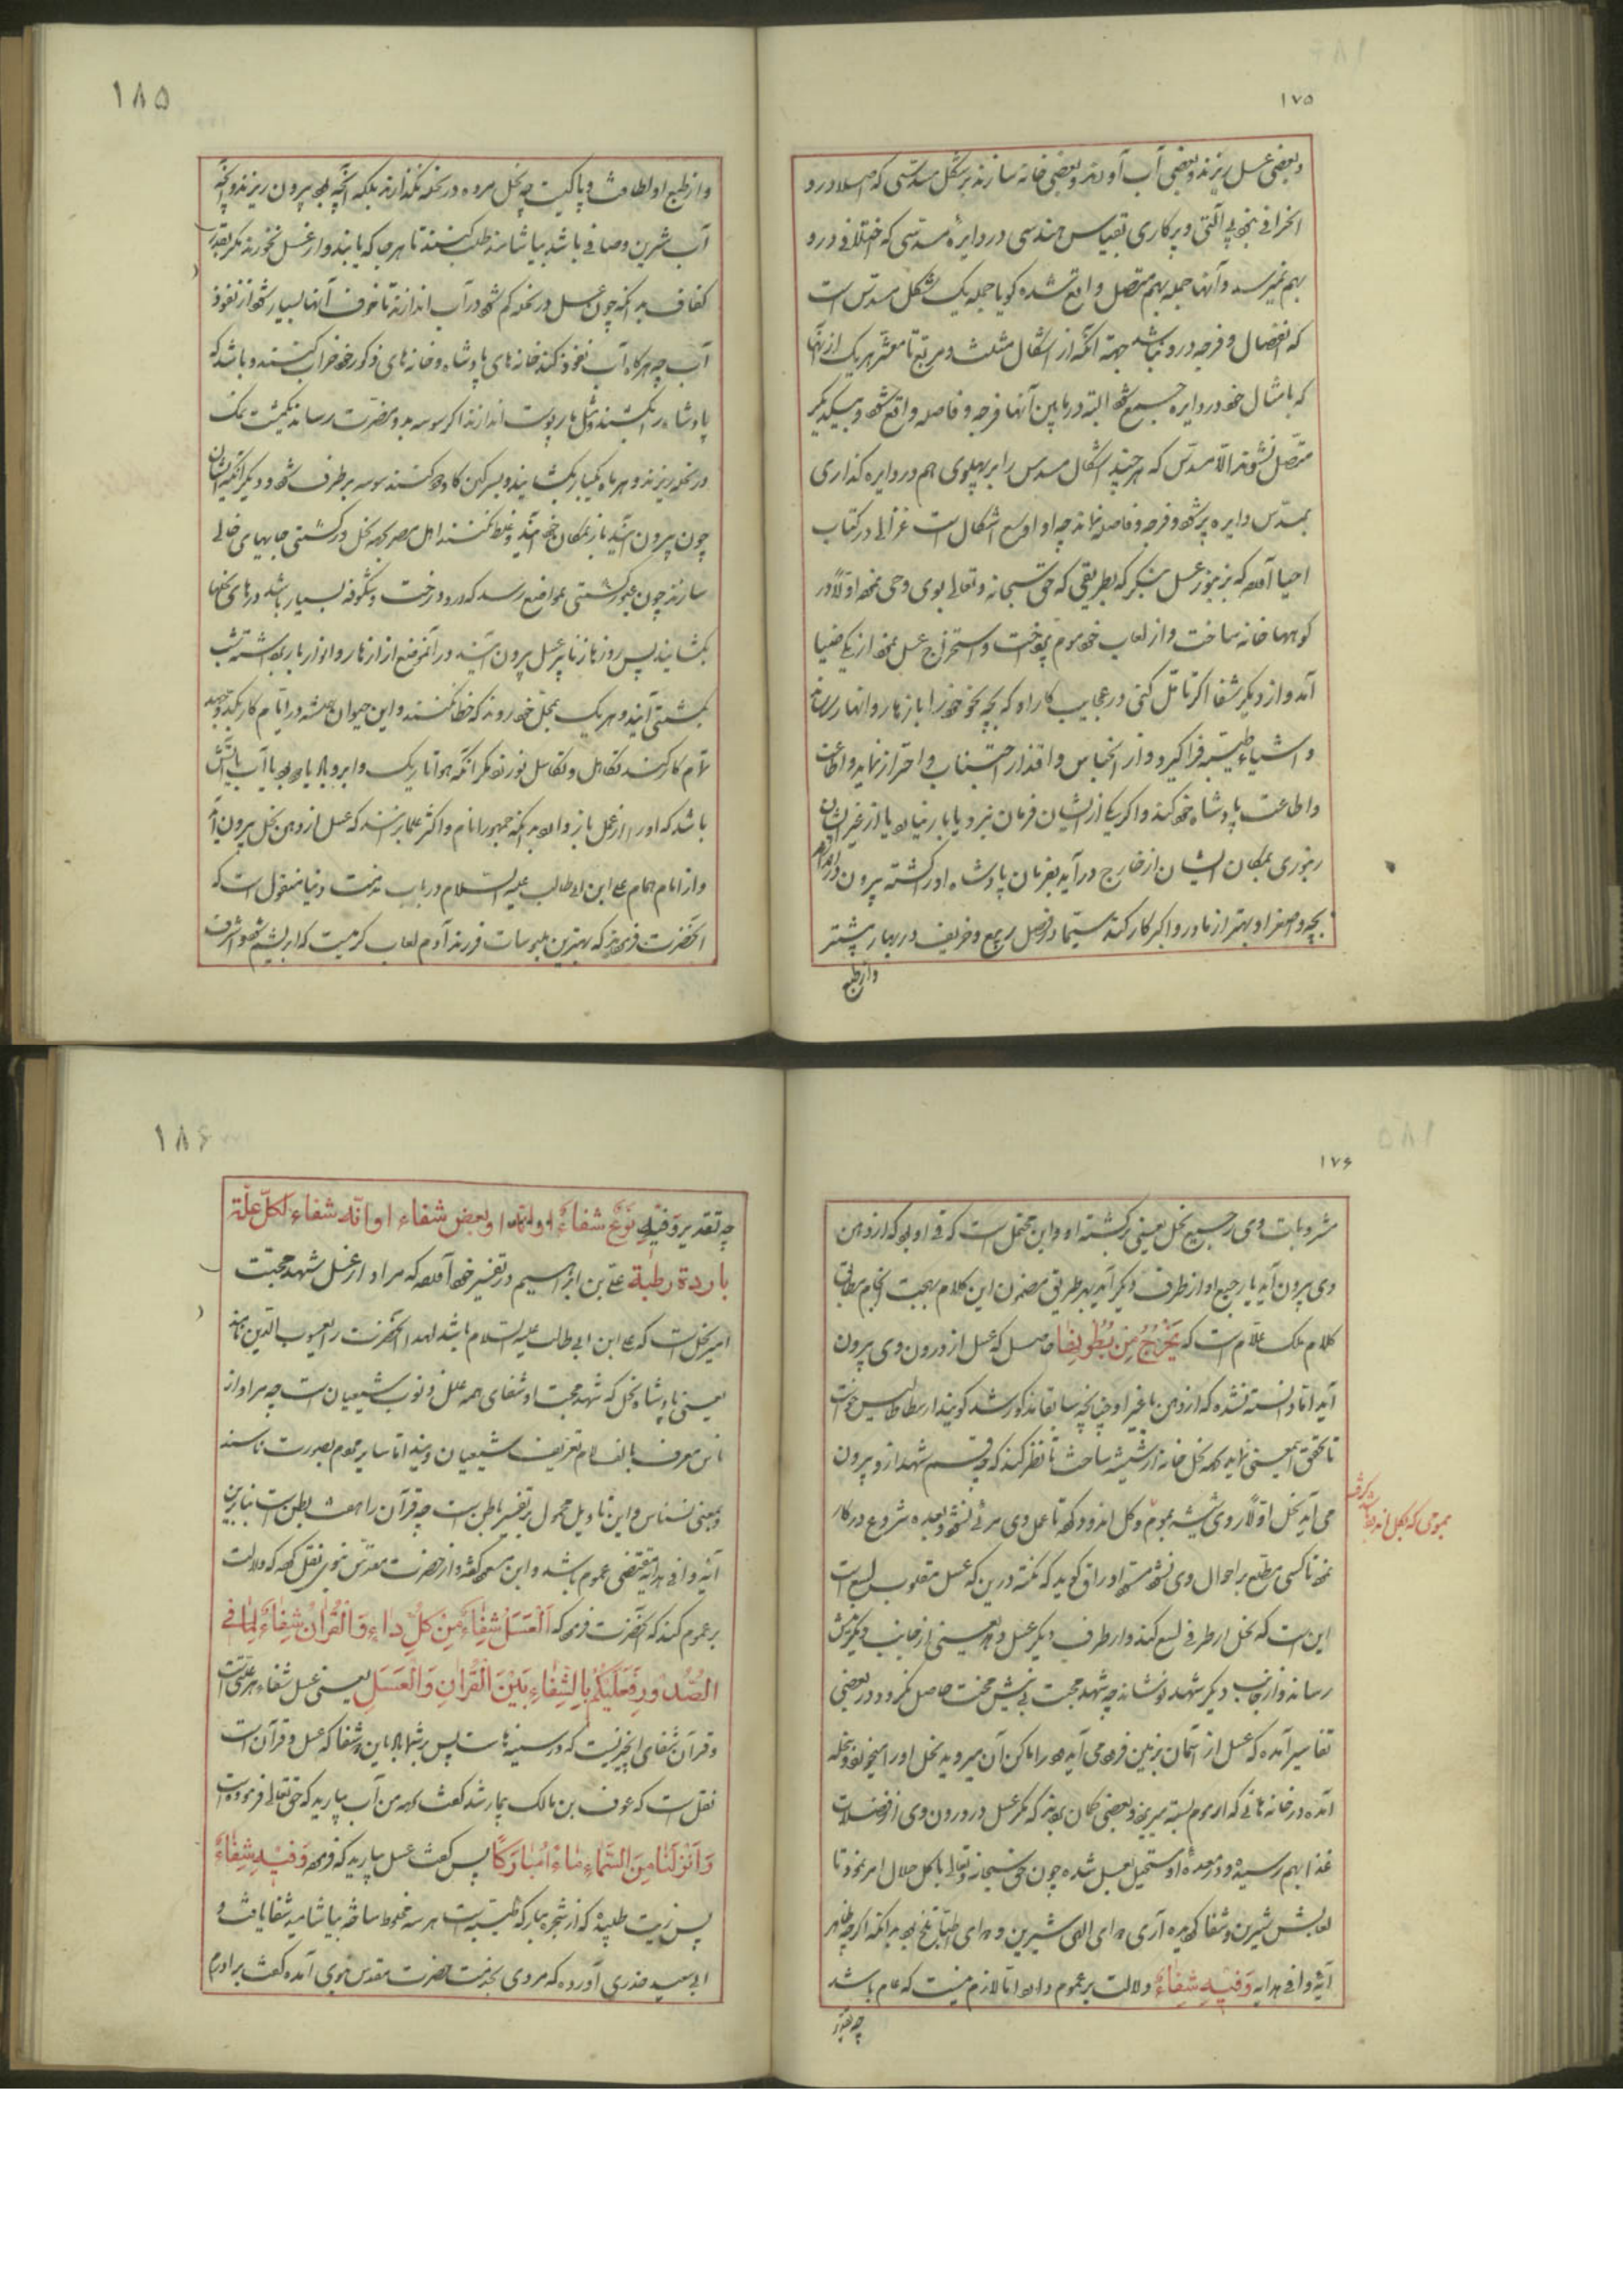 ۱۷۵
وبعضی عسل ریزند وبعضی آب آورند وبعضی خانه سازند بر شکل مسدسی که اصلا در و
انحرافی نبود بی آلتی و پرکاری بقیاس هندسی در دایرهٔ مسدسی که اختلافی در و
بهم نمیرسد و آنها جمله بهم متصل واقع شده کویا جمله یک شکل مسدس است
که انفصال و فرجه در و نباشد جهة آنکه از اشکال مثلث و مربع تا معشر هر یک از آنها
که با مثال خود در دایره جمع شود البته در ما بین آنها فرجه و فاصله واقع شود و بیکدیکر
متصل نشوند الا مسدس که هر چند اشکال مسدس را بر پهلوی هم در دایره کذاری
بمسدس دایره پر شود و فرجه و فاصله نماند چه او اوسع اشکال است غزالی در کتاب
احیا آورده که بزنبور عسل بنکر که بطریقی که حق سبحانه وتعالی بوی وحی نموده اولاً در
کوهها خانه ساخت و از لعاب خود موم پخت و استخراج عسل نمود از یکی ضیا
آمد و از دیکر شفا اکر تأمل کنی در عجایب کار او که بچه نحو خود را با زهار و انهار رساند
و اشیاء طیبه فرا کیرد و از انجاس و اقذار اجتناب و احتراز نماید و اطاعت
واطاعت پادشاه خود کند و اکر یکی از ایشان فرمان نبرد یا بار نیاورد یا از غیر ایشان
زنبوری بمکان ایشان از خارج در آید بفرمان پادشاه او را کشته بیرون اندازند
بچه و صغر او بهتر از مادر و اکبر کار کند سیما در فصل ربیع و خریف در بهار بیشتر
واز طبع
۱۸۵
و از طبع او لطافت و پاکیست چه نحل مرده در نحله نکذارند بلکه آنچه بود بیرون ریزند و آنچه
آب شیرین و صافی باشد بیاشامند طلب کنند تا هر جا که یابند و از عسل نخورند مکر بقدر
کفاف بدانکه چون عسل در نحله کم شود در آب اندازند تا خوف آنها بسیار شود از نفوذ
آب چه هرکاه آب نفوذ کند خانه های پادشاه و خانه های ذکور خود خراب کنند و باشد که
پادشاه را بکشند و مثل مار پوست اندازند اکر سوسه بدو مضرت رساند یکمشت نمک
در نحله ریزند و هر ماه یکبار بکشایند و بسرکین کاو دود کنند سوسه بر طرف شود و دیکر آنکه ایشان
چون بیرون آیند باز بمکان خود آیند و غلط نکنند اهل مصر بجهة نحل در کشتی جایهای خالی
سازند چون بکشتی بمواضع رسد که در و درخت و شکوفه بسیار باشد درهای نحلها
بکشایند پس روزها زنابیر عسل بیرون آیند در آن موضع از ازهار و انوار بار برداشته شب
بکشتی آیند و هر یک بمحل خود روند که خطا نکنند و این حیوان همیشه در ایام کار بکد و جهد
تمام کار کنند تکاهل و تکاسل نورزند مکر آنکه هوا تاریک و ابر و باد یا دود یا آب یا آتش
باشد که او را از عمل باز دارد بدانکه جمهور انام و اکثر علما برانند که عسل از دهن نحل بیرون آید
و از امام همام علی ابن ابی طالب علیه السلام در باب مذمت دنیا منقول است که
آنحضرت فرمودند که بهترین ملبوسات فرزند آدم لعاب کرمیست که ابریشم شود و اشرف
۱۷۶
مشروبات وی رجیع نحل یعنی برکشته او و این محتمل است که قی او بود که از دهن
وی بیرون آید یا رجیع او از طرف دیکر آید بهر طریق مضمون این کلام بهجت انجام مطابق
کلام ملک علام است که یَخْرُجُ مِنْ بُطُونِهَا حاصل که عسل از درون وی بیرون
آید اما دانسته نشده که از دهن یا غیر او چنانچه سابقا مذکور شد کویند ارسطاطالیس خواست
تا تحقیق این معنی نماید بجهة نحل خانه از شیشه ساخت تا نظر کند که چه قسم شهد از و بیرون
می آید نحل اولاً روی شیشه بموم و کل اندود کرد تا عمل وی مرئی نشود و بعده شروع در کار
نمود تا کسی مطلع بر احوال وی نشود مسود اوراق کوید که نکته درین که عسل مقلوب لسع است
این است که نحل از طرفی لسع کند و از طرف دیکر عسل دهد یعنی از جانب دیکر نیش
رساند و از جانب دیکر شهد نوشاند چه شهد محبت بی نیش محنت حاصل نکردد در بعضی
تفاسیر آمده که عسل از آسمان بزمین فرود می آید و در اماکن آن میروید نحل او را میخورد و بنحله
آمده در خانه هائی که از موم بسته میریزد و بعضی کمان برند که مکر عسل در درون وی از فضلات
غذا بهم رسیده و در معدهٔ او مستحیل بعسل شده چون حق سبحانه وتعالی باکل حلال امر نمود تا
لعابش شیرین و شفا کردد آری دوای الهی شیرین و دوای اطبا تلخ بود بدانکه اکرچه ظاهر
آیهٔ وافی هدایه وَفِیهِ شِفَاءٌ دلالت بر عموم دارد اما لازم نیست که عام باشد
چه تقدیر
۱۸۶
چه تقدیر وَفیهِ نَوْعُ شفاءٌ اولهذا وبعض شفاء او انّه شفاء لکلّ علّة
باردة رطبة علی بن ابراهیم در تفسیر خود آورده که مراد از عسل شهد محبت
امیر نحل است که علی ابن ابی طالب علیه السلام باشد لهذا آنحضرت را یعسوب الدین نامند
یعنی پادشاه نحل که شهد محبت او شفای همه علل ذنوب شیعیان است چه مراد از
ناس معرف بالف لام تعریف شیعیان ویند اما سایر مردم بصورت ناسند
وبمعنی نسناس و این تأویل محمول بر تفسیر باطن است چه قرآن را هفت بطن است بنابرین
آیهٔ وافی هدایه مقتضی عموم باشد و ابن مسعود کفته و از حضرت مقدس نبوی نقل کرده که دلالت
بر عموم کند که آنحضرت فرمود که اَلْعَسَلُ شِفَاءٌ مِنْ کُلِّ دَاءٍ وَالْقُرْآنُ شِفَاءٌ لِمَا فِی
الصُّدُورِ فَعَلَیْکُمْ بِالشِّفَاءِ بَیْنَ الْقُرْآنِ وَالْعَسَلِ یعنی عسل شفاء هر علتی است
و قرآن شفای آنچیزیست که در سینه هاست پس بر شما باد باین دو شفا که عسل و قرآن است
نقل است که عوف بن مالک بیمار شد کفت بجهة من آب بیارید که حق تعالی فرموده است
وَأَنْزَلْنَا مِنَ السَّمَاءِ مَاءً مُبَارَکًا پس کفت عسل بیارید که فرموده وَفِیهِ شِفَاءٌ
پس زیت طلبیده که از شجره مبارکه طیبه است هر سه مخلوط ساخته بیاشامید شفا یافت و
ابی سعید خدری آورده که مردی بخدمت حضرت مقدس نبوی آمده کفت برادرم